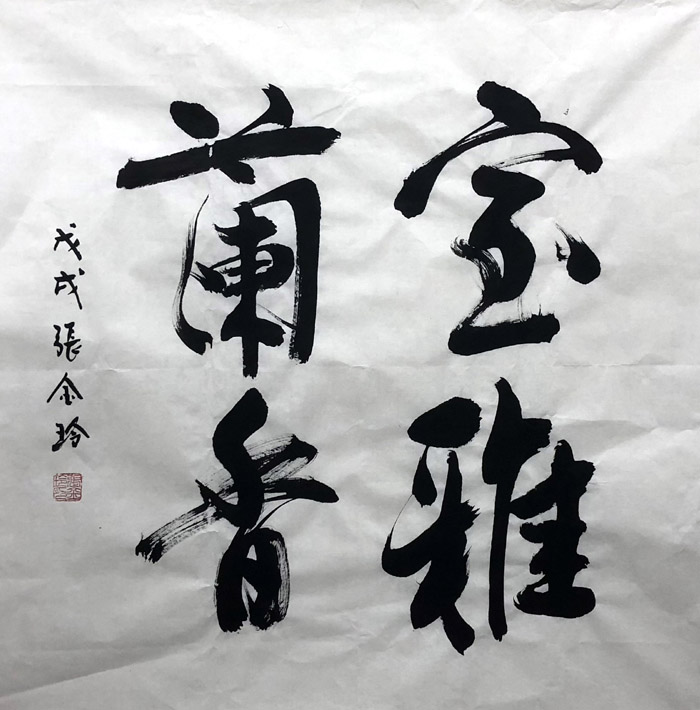 室雅
蘭香
戊戌張金玲